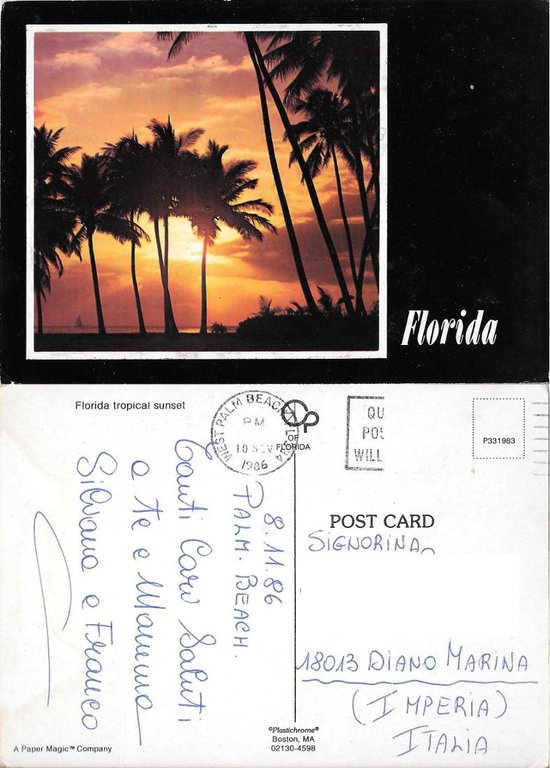 Florida
Florida tropical sunset
WEST PALM BEACH, FL 334
PM
10 NOV
1986
OF
FLORIDA
QU
POS
WILL
P331983
8.11.86
PALM. BEACH.
Tanti Cari Saluti
a te e Mamma
Silvana e Franco
POST CARD
SIGNORINA
18013 DIANO MARINA
(IMPERIA)
ITALIA
©Plastichrome®
Boston, MA
02130-4598
A Paper Magic™ Company